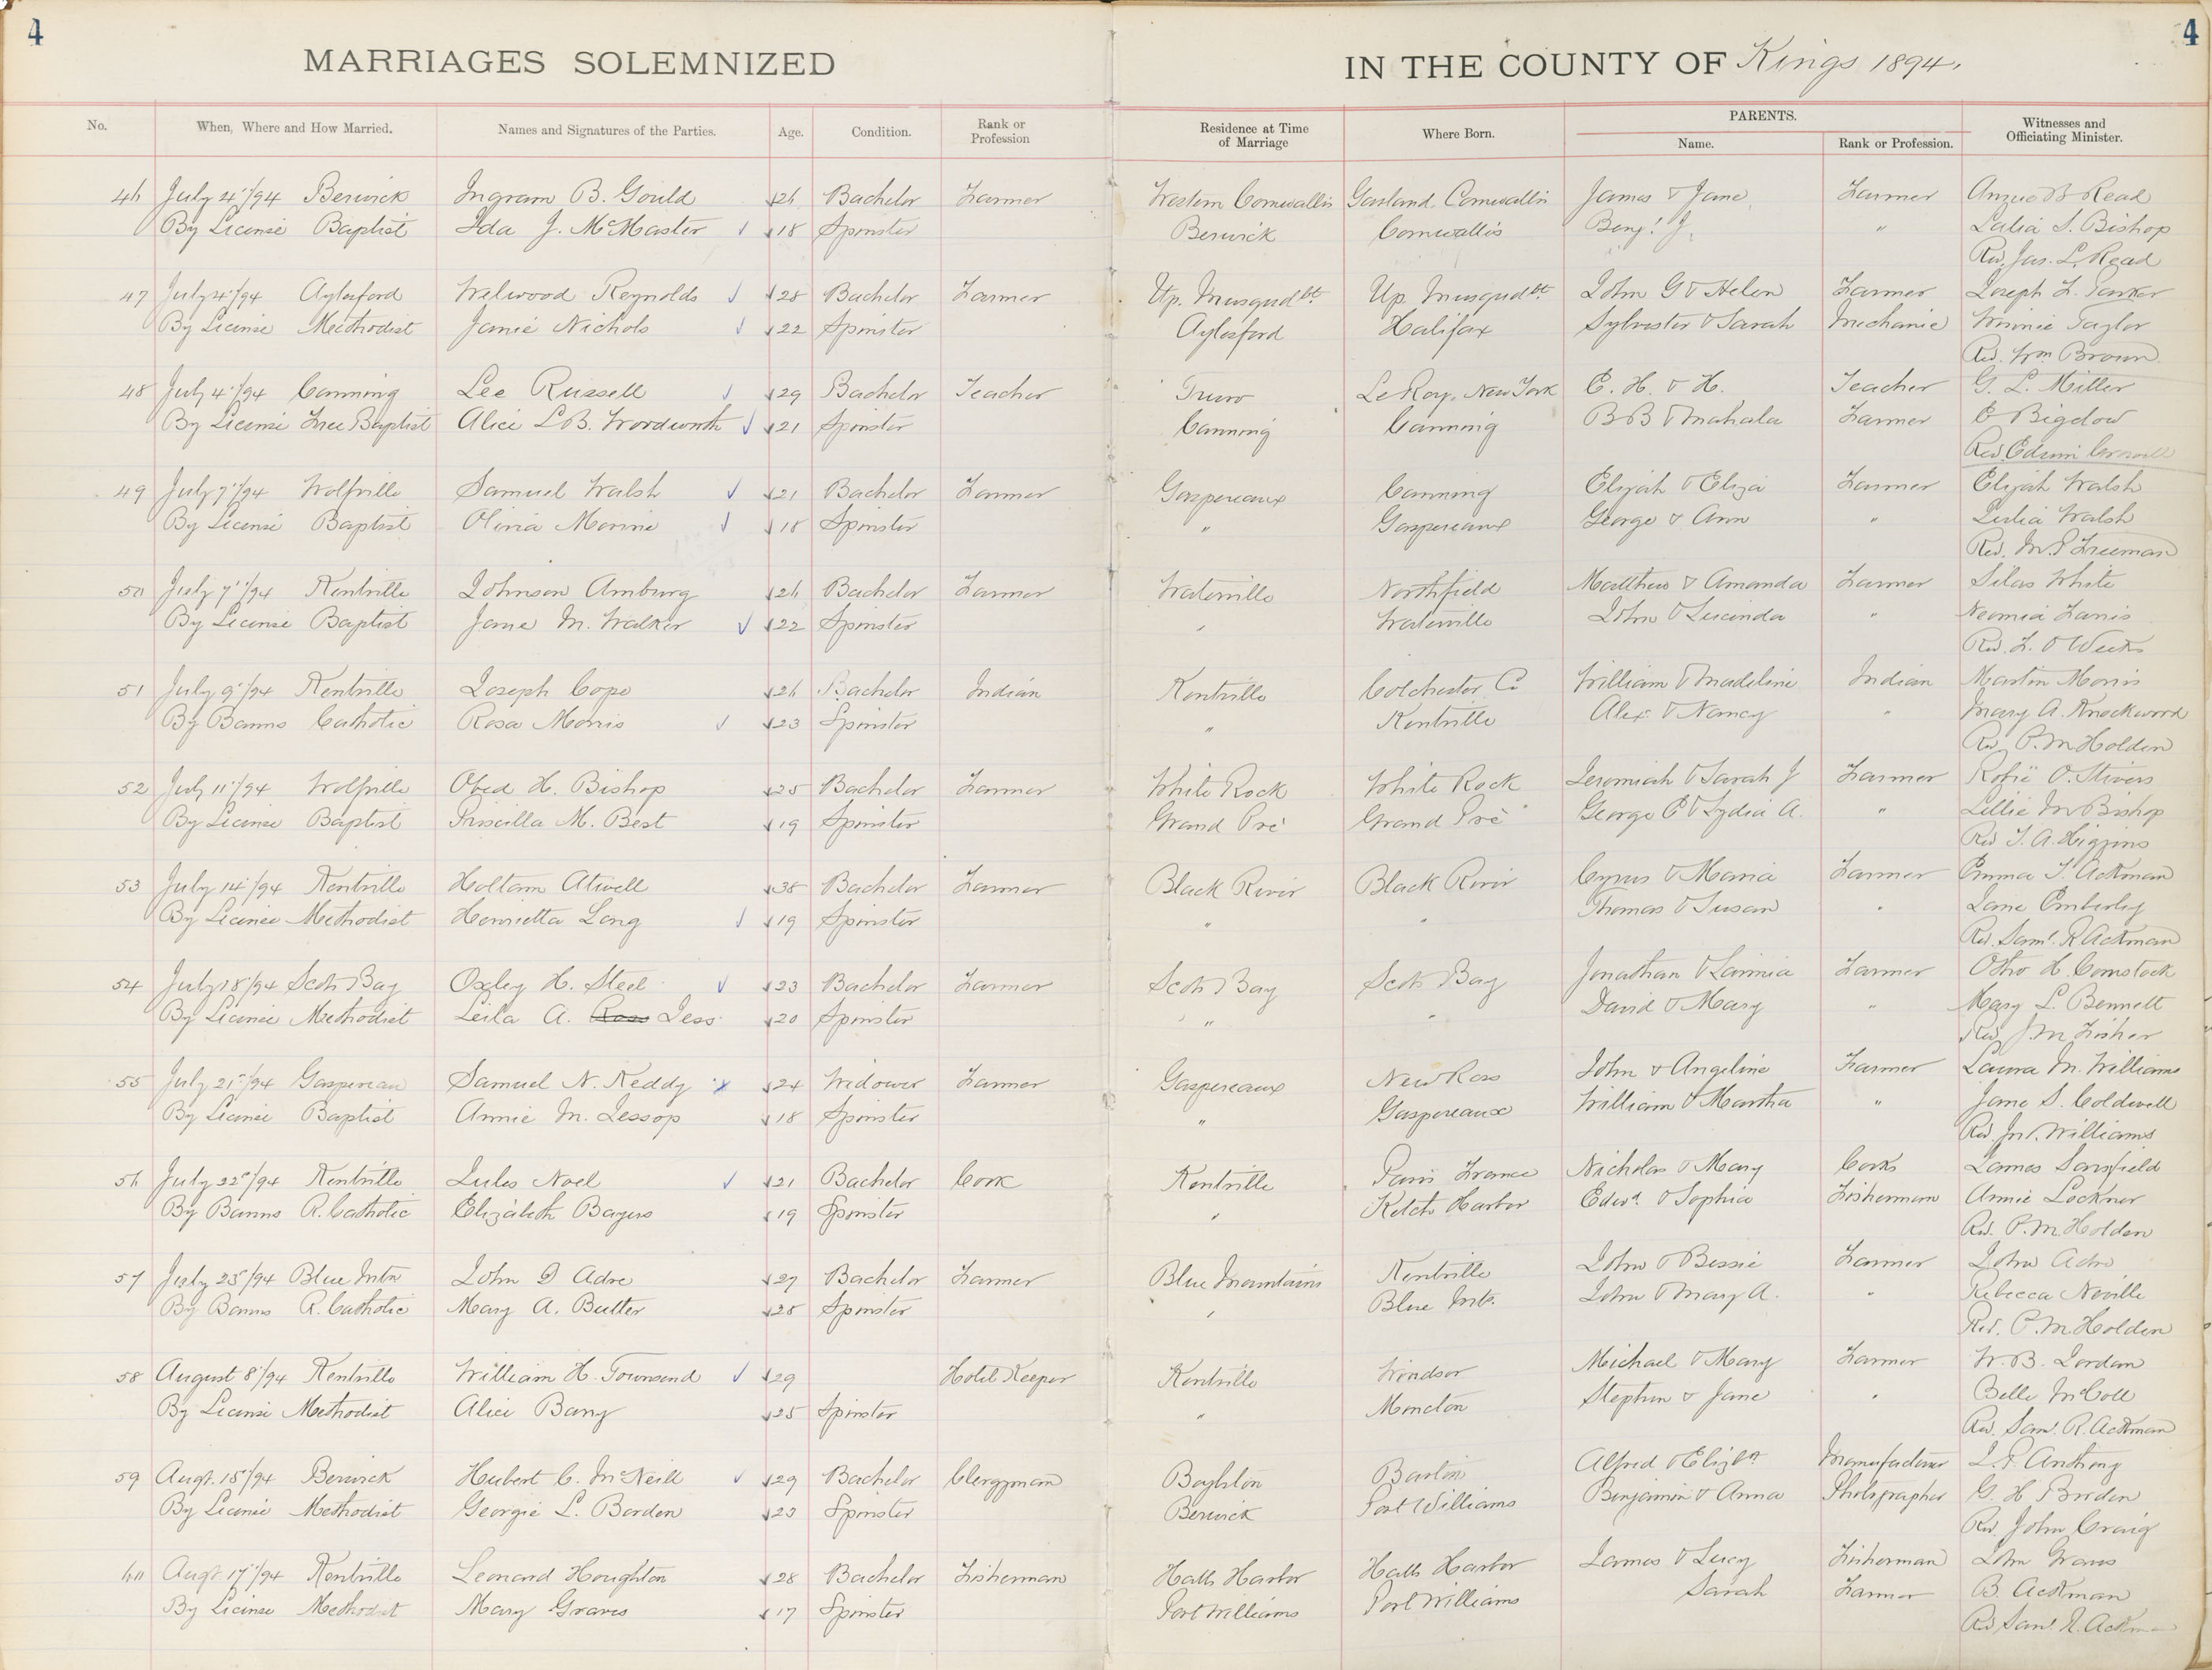 4
4
MARRIAGES SOLEMNIZED IN THE COUNTY OF Kings 1894.
No. When, Where and How Married. Names and Signatures of the Parties. Age. Condition. Rank or Profession Residence at Time of Marriage Where Born. PARENTS. Name. Rank or Profession. Witnesses and Officiating Minister.
46 July 4/94 Berwick Ingram B. Gould 26 Bachelor Farmer Western Cornwallis Garland, Cornwallis James & Jane Farmer Read
By License Baptist Ida J. McMaster 18 Spinster Berwick Cornwallis Benj. J. " Lalia S. Bishop
Rev. Jas. L. Read
47 July 4/94 Aylesford Welwood Reynolds 28 Bachelor Farmer Up. Musquodbt. Up. Musquodbt. John G & Helen Farmer Joseph L. Parker
By License Methodist Janie Nichols 22 Spinster Aylesford Halifax Sylvester & Sarah Mechanic Winnie Taylor
Rev. Wm Brown
48 July 4/94 Canning Lee Russell 29 Bachelor Teacher Truro Le Roy, New York C. H. & H. Teacher G. L. Miller
By License Free Baptist Alice L.B. Wordworth 21 Spinster Canning Canning B B & Mahala Farmer E Bigelow
Rev. Edwin Crowell
49 July 7/94 Wolfville Samuel Walsh 21 Bachelor Farmer Gaspereaux Canning Elijah & Eliza Farmer Elijah Walsh
By License Baptist Olivia Morine 18 Spinster " Gaspereaux George & Ann " Julia Walsh
Rev. M. P. Freeman
50 July 7/94 Kentville Johnson Amburg 26 Bachelor Farmer Waterville Northfield Matthew & Amanda Farmer Silas White
By License Baptist Jane M. Walker 22 Spinster " Waterville John & Lucinda " Neomia Farris
Rev. L. O Weeks
51 July 9/94 Kentville Joseph Cope 26 Bachelor Indian Kentville Colchester Co William & Madeline Indian Martin Morris
By Banns Catholic Rosa Morris 23 Spinster " Kentville Alex. & Nancy " Mary A. Knockwood
Rev. P. M Holden
52 July 11/94 Wolfville Obed H. Bishop 25 Bachelor Farmer White Rock White Rock Jeremiah & Sarah J Farmer O. Stivers
By License Baptist Priscilla M. Best 19 Spinster Grand Pré Grand Pré George E & Lydia A. " Lillie M Bishop
Rev T. A. Higgins
53 July 14/94 Kentville Holtam Atwell 38 Bachelor Farmer Black River Black River Cyrus & Maria Farmer Emma T. Ackman
By License Methodist Henrietta Long 19 Spinster " " Thomas & Susan " Jane Emberley
Rev. Saml. R Ackman
54 July 18/94 Scots Bay Oxley H. Steel 23 Bachelor Farmer Scots Bay Scots Bay Jonathan & Lavinia Farmer Otho H. Comstock
By License Methodist Leila A. Ross Jess 20 Spinster " " David & Mary " Mary L. Bennett
Rev J. M. Fisher
55 July 21/94 Gaspereau Samuel N. Keddy 24 Widower Farmer Gaspereaux New Ross John & Angeline Farmer Laura M. Williams
By License Baptist Annie M. Jessop 18 Spinster " Gaspereaux William & Martha " Jane S. Coldwell
Rev. Williams
56 July 22/94 Kentville Jules Noel 21 Bachelor Cook Kentville Paris France Nicholas & Mary Cooks James Sarsfield
By Banns R. Catholic Elizabeth Bayers 19 Spinster " Ketch Harbor Edwd. & Sophia Fisherman Annie Lockner
Rev. P. M. Holden
57 July 25/94 Blue Mtn John D Adre 27 Bachelor Farmer Blue Mountains Kentville John & Bessie Farmer John Adre
By Banns R. Catholic Mary A. Butler 28 Spinster " Blue Mts. John & Mary A. " Rebecca Neville
Rev. P. M. Holden
58 August 8/94 Kentville William H. Townsend 29 Hotel Keeper Kentville Windsor Michael & Mary Farmer W. B. Jordan
By License Methodist Alice Barry 25 Spinster " Moncton Stephen & Jane " Belle McColl
Rev. Saml. R. Ackman
59 Augt. 15/94 Berwick Hubert C. McNeill 29 Bachelor Clergyman Boylston Barton Alfred & Elizbth Manufacturer Anthony
By License Methodist Georgie L. Borden 23 Spinster Berwick Port Williams Benjamin & Anna Photographer G. H Borden
Rev. John Craig
60 Augt. 17/94 Kentville Leonard Houghton 28 Bachelor Fisherman Halls Harbor Halls Harbor James & Lucy Fisherman John Graves
By License Methodist Mary Graves 17 Spinster Port Williams Port Williams Sarah Farmer B. Ackman
Rev Saml. R. Ackman